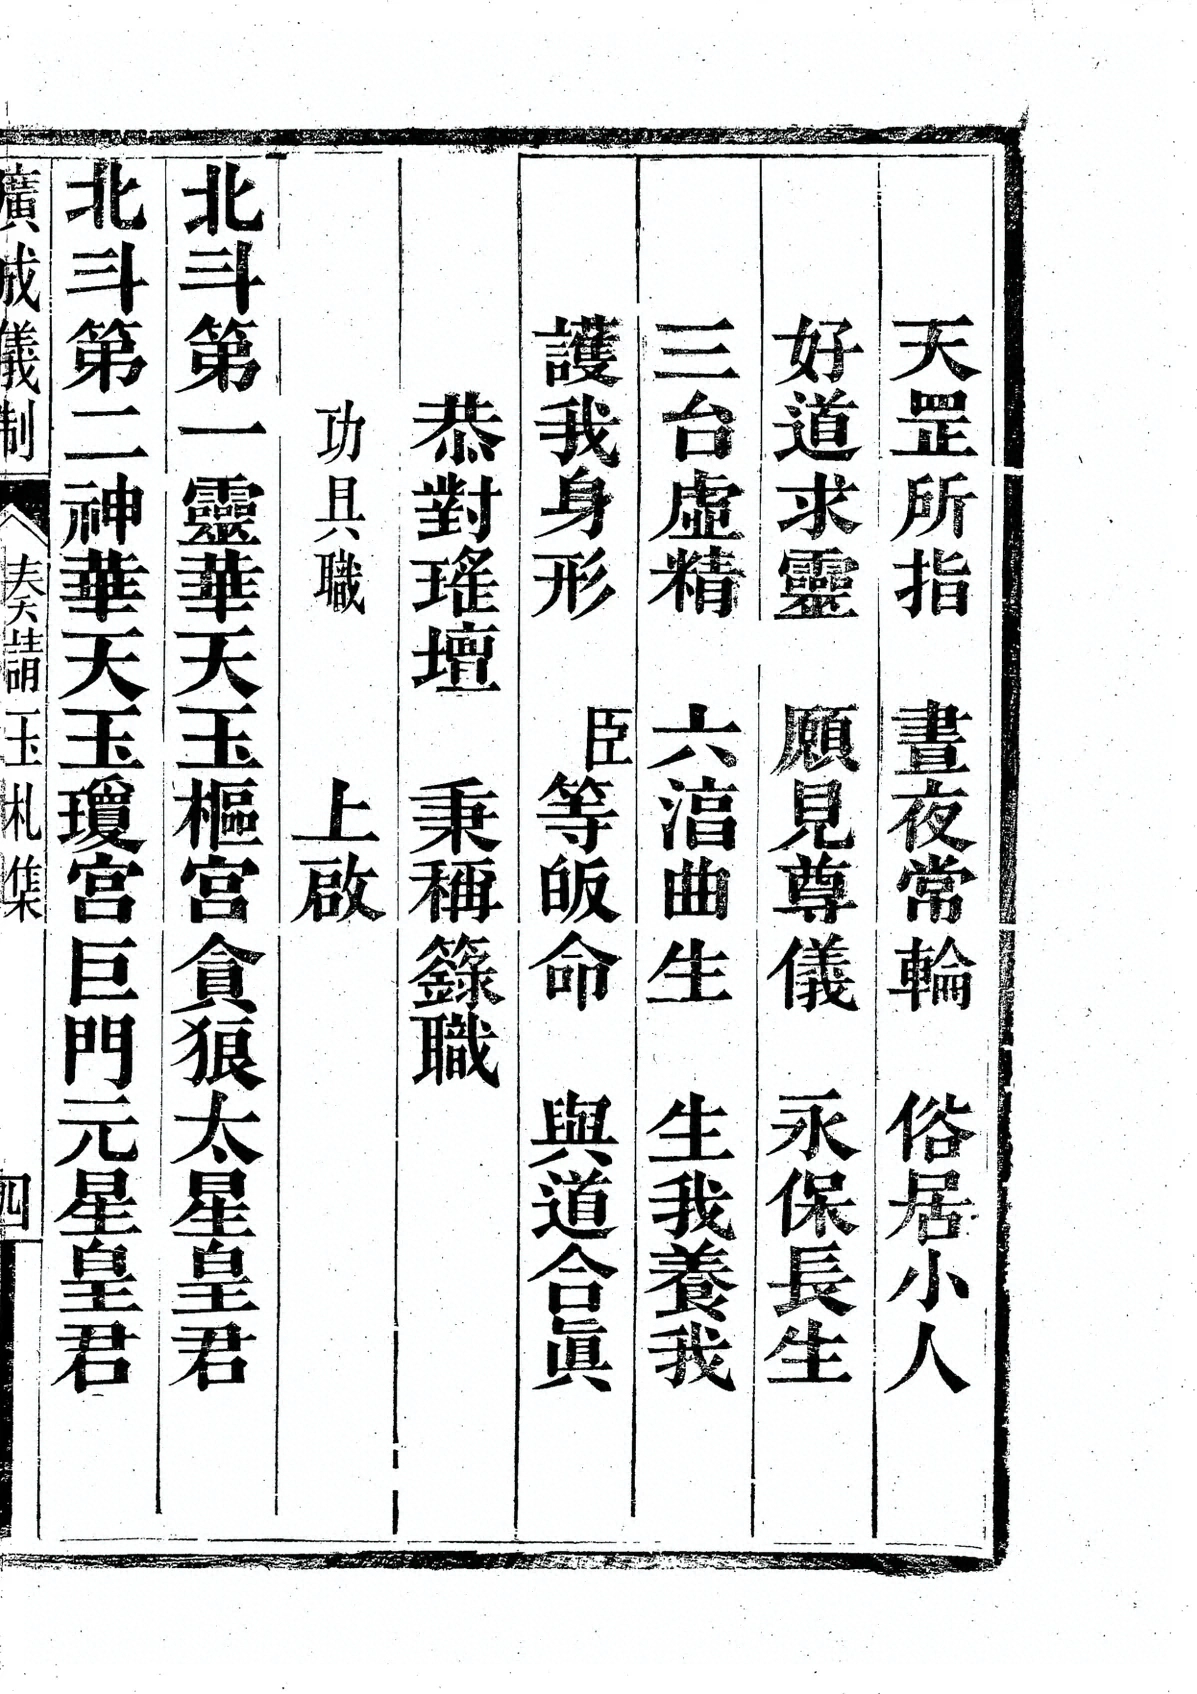 天罡所指　晝夜常輪　俗居小人
好道求靈　願見尊儀　永保長生
三台虛精　六淳曲生　生我養我
護我身形　臣等皈命　與道合眞
恭對瑤壇　秉稱籙職
功具職　上啟
北斗第一靈華天玉樞宮貪狼太星皇君
北斗第二神華天玉瓊宮巨門元星皇君
廣成儀制　奏請玉札集　四